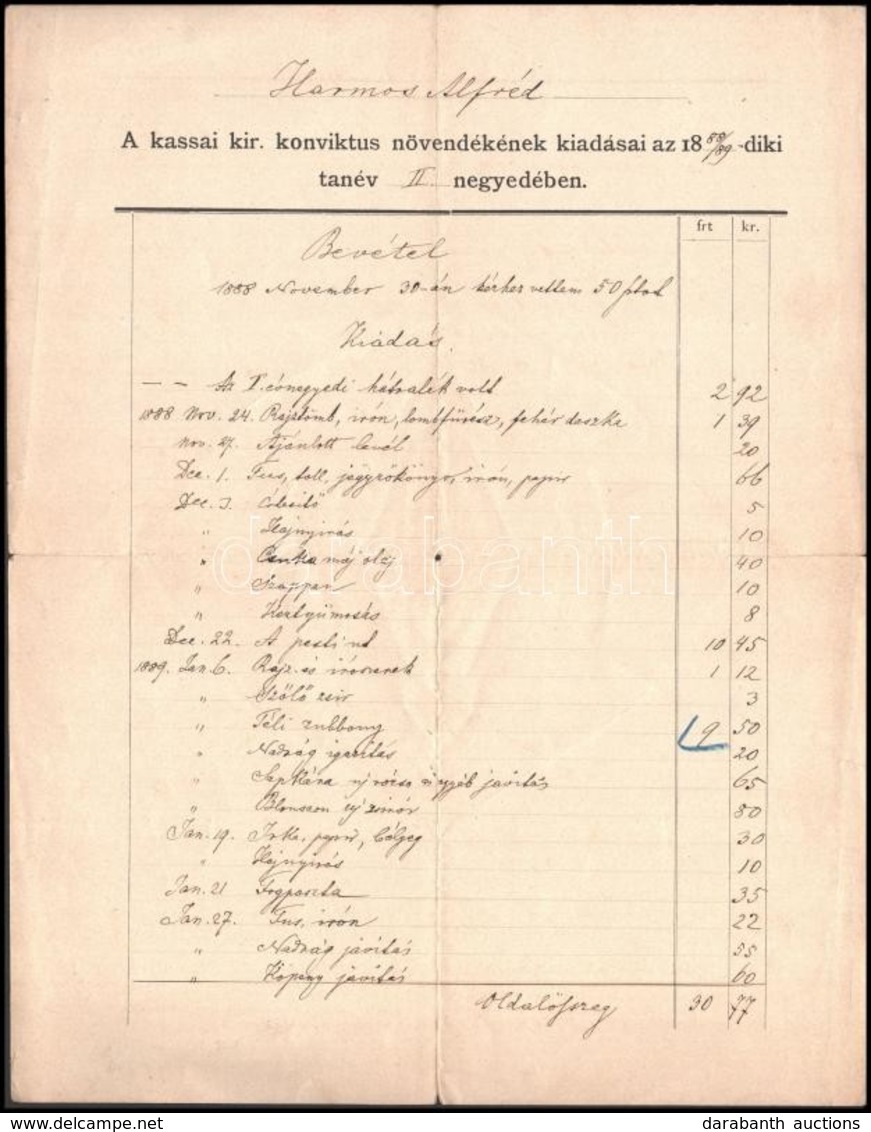 Harmos Alfréd
A kassai kir. konviktus növendékének kiadásai az 1888/89-diki
tanév II negyedében.
frt kr.
Bevétel
1888 November 30-án térhez vettem 50 ftot
Kiadás.
— — Az I. évnegyedi hátralék volt 2 92
1888 Nov. 24. Rajztömb, irón, lombfűrész, fehér deszka 1 39
Nov. 27. Ajánlott levél 20
Dec. 1. Tus, toll, jegyzőkönyv, irón, papir 66
Dec. 3. 5
" Hajnyirás 10
" máj olaj 40
" Szappan 10
" Keztyümosás 8
Dec. 22. A pesti ut 10 45
1889. Jan. 6. Rajz. és irószerek 1 12
" Szőlő zsir 3
" Téli zubbony 9 50
" Nadrág igazitás 20
" Sapkára uj rózsa s egyéb javitás 65
" Blouseon uj zsinór 80
Jan. 19. Irka, papir, bélyeg 30
" Hajnyirás 10
Jan. 21 Fogpaszta 35
Jan. 27. Tus, irón 22
" Nadrág javitás 55
" Köpeny javitás 60
Oldalösszeg 30 77
darabanth
darabanth auctions
www.delcampe.net